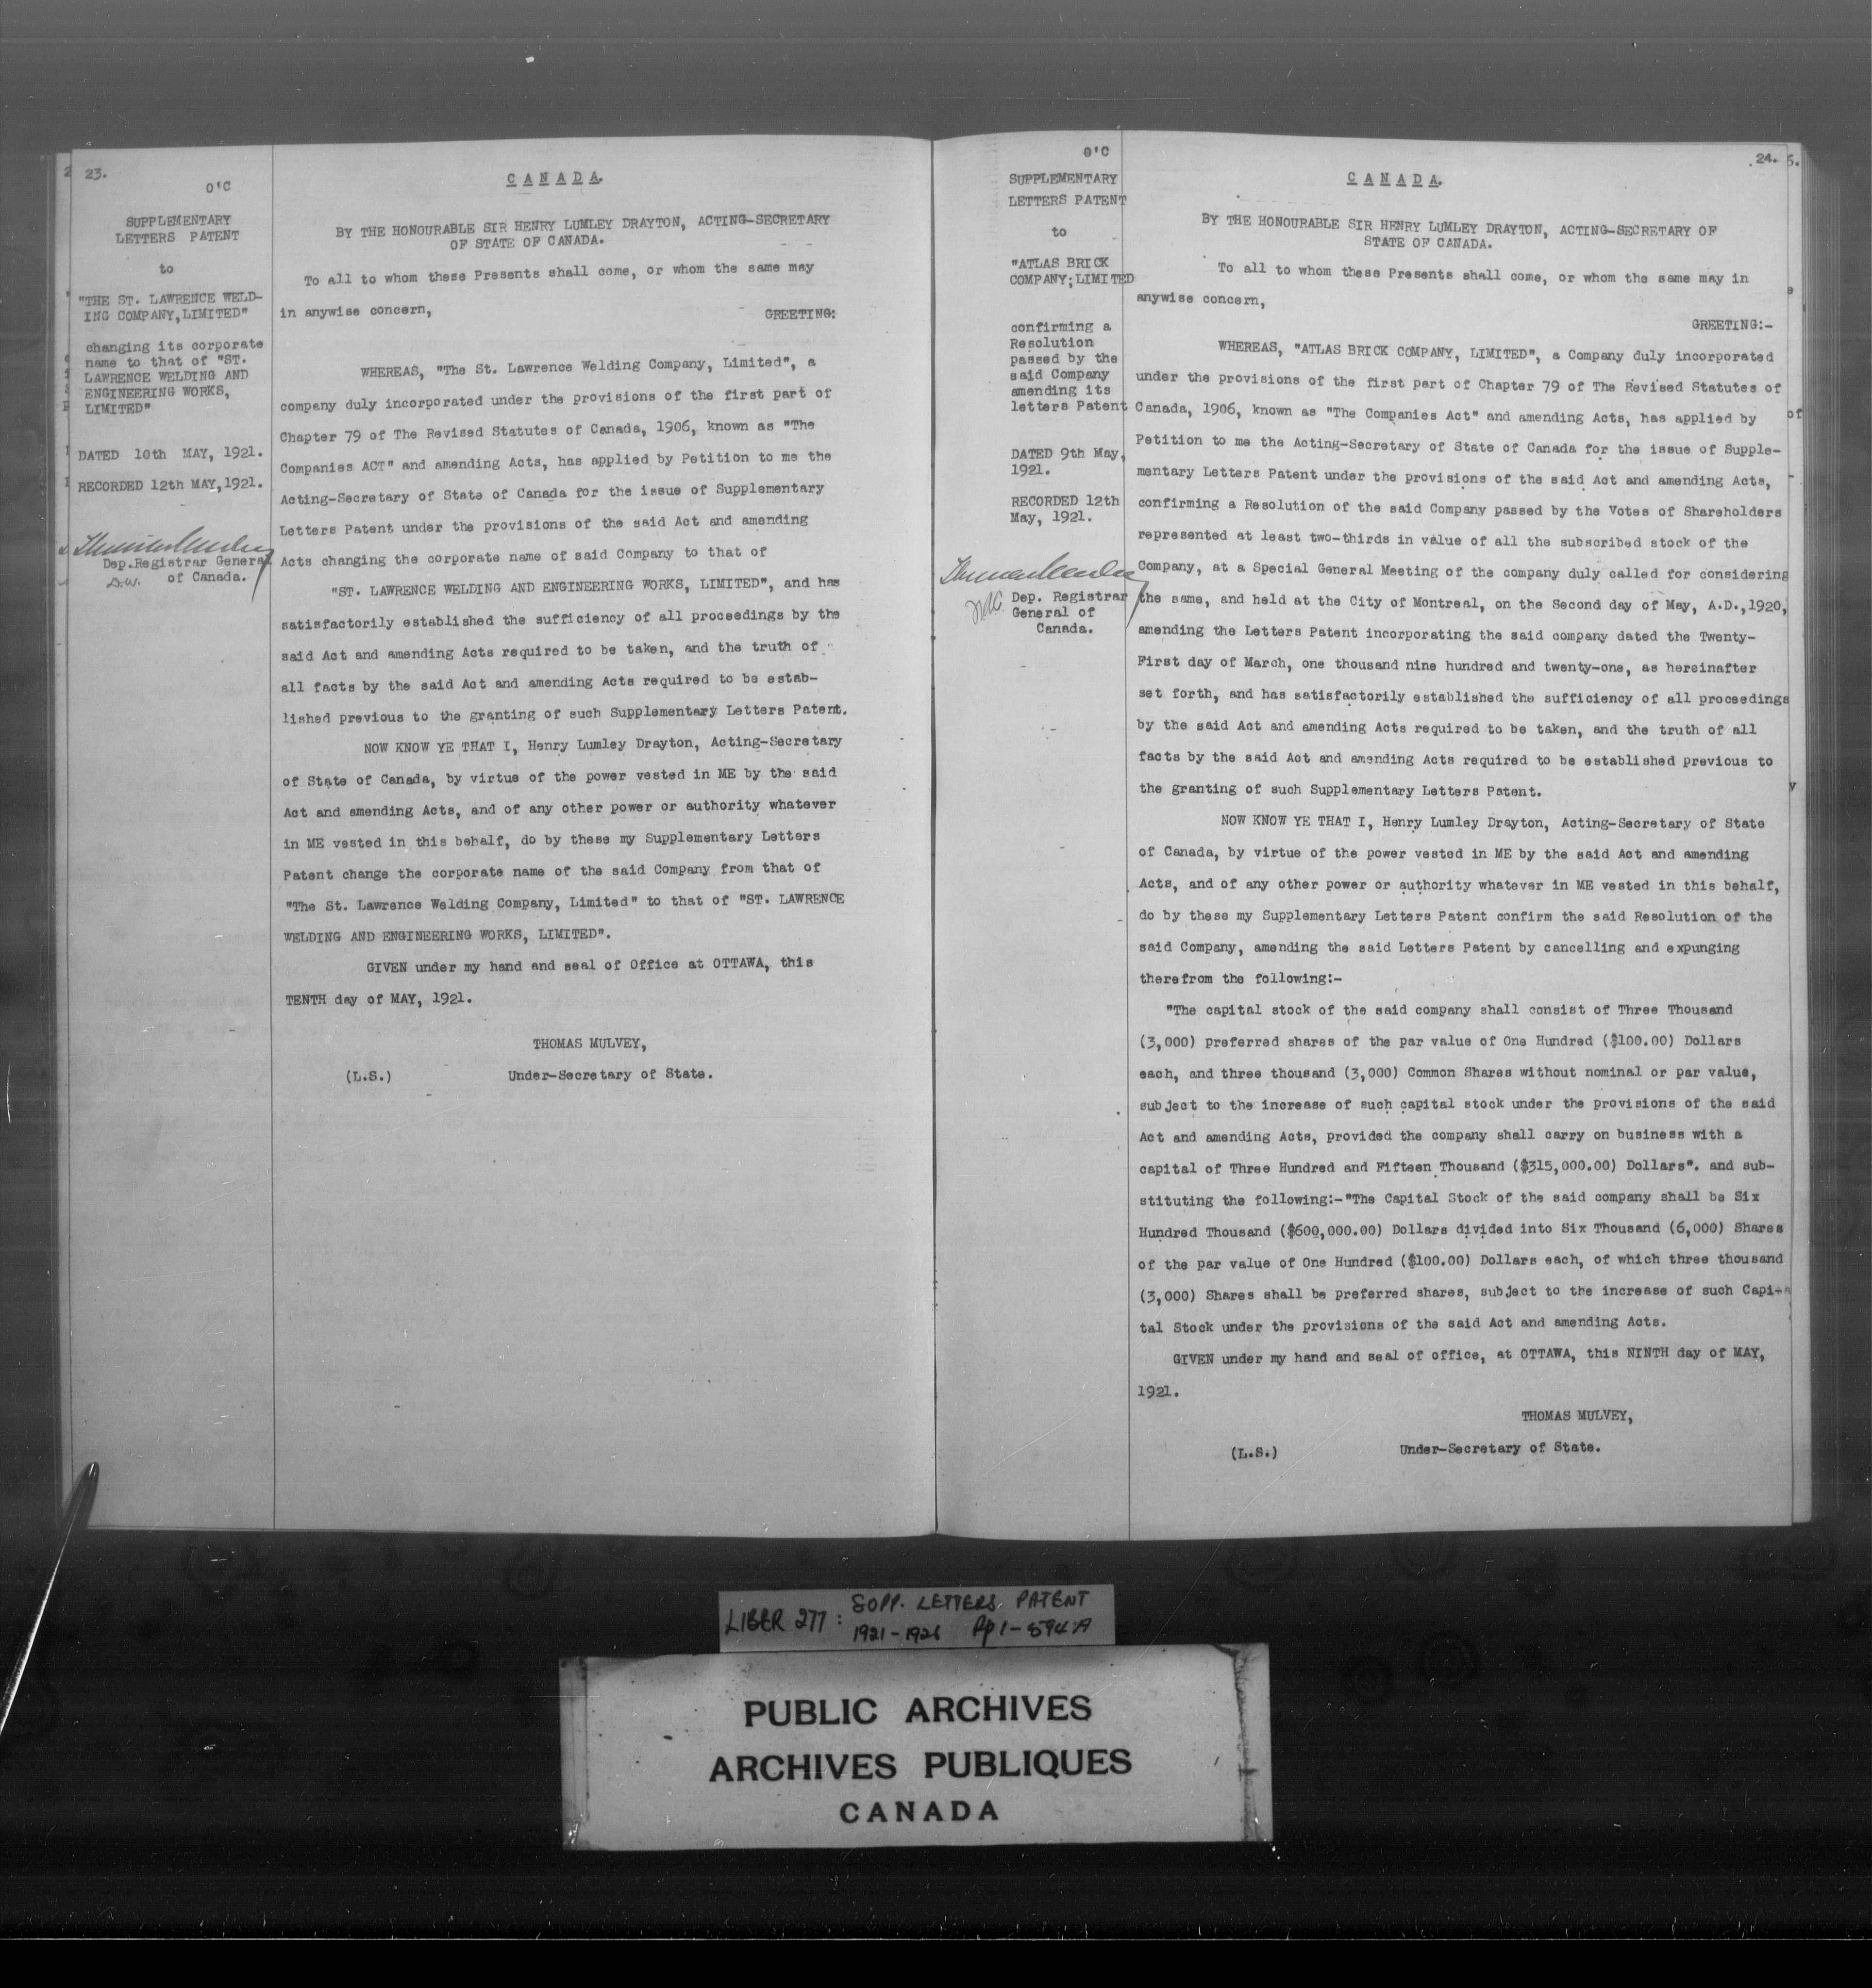 23.
O'C
SUPPLEMENTARY
LETTERS PATENT
to
"THE ST. LAWRENCE WELD-
ING COMPANY,LIMITED"
changing its corporate
name to that of "ST.
LAWRENCE WELDING AND
ENGINEERING WORKS,
LIMITED"
DATED 10th MAY, 1921.
RECORDED 12th MAY,1921.
Dep.Registrar General
of Canada.
CANADA.
BY THE HONOURABLE SIR HENRY LUMLEY DRAYTON, ACTING-SECRETARY
OF STATE OF CANADA.
To all to whom these Presents shall come, or whom the same may
in anywise concern, GREETING:
WHEREAS, "The St. Lawrence Welding Company, Limited", a
company duly incorporated under the provisions of the first part of
Chapter 79 of The Revised Statutes of Canada, 1906, known as "The
Companies ACT" and amending Acts, has applied by Petition to me the
Acting-Secretary of State of Canada for the issue of Supplementary
Letters Patent under the provisions of the said Act and amending
Acts changing the corporate name of said Company to that of
"ST. LAWRENCE WELDING AND ENGINEERING WORKS, LIMITED", and has
satisfactorily established the sufficiency of all proceedings by the
said Act and amending Acts required to be taken, and the truth of
all facts by the said Act and amending Acts required to be estab-
lished previous to the granting of such Supplementary Letters Patent.
NOW KNOW YE THAT I, Henry Lumley Drayton, Acting-Secretary
of State of Canada, by virtue of the power vested in ME by the said
Act and amending Acts, and of any other power or authority whatever
in ME vested in this behalf, do by these my Supplementary Letters
Patent change the corporate name of the said Company from that of
"The St. Lawrence Welding Company, Limited" to that of "ST. LAWRENCE
WELDING AND ENGINEERING WORKS, LIMITED".
GIVEN under my hand and seal of Office at OTTAWA, this
TENTH day of MAY, 1921.
THOMAS MULVEY,
(L.S.) Under-Secretary of State.
24.
O'C
SUPPLEMENTARY
LETTERS PATENT
to
"ATLAS BRICK
COMPANY;LIMITED
confirming a
Resolution
passed by the
said Company
amending its
letters Patent
DATED 9th May,
1921.
RECORDED 12th
May, 1921.
Dep. Registrar
General of
Canada.
CANADA.
BY THE HONOURABLE SIR HENRY LUMLEY DRAYTON, ACTING-SECRETARY OF
STATE OF CANADA.
To all to whom these Presents shall come, or whom the same may in
anywise concern,
GREETING:-
WHEREAS, "ATLAS BRICK COMPANY, LIMITED", a Company duly incorporated
under the provisions of the first part of Chapter 79 of The Revised Statutes of
Canada, 1906, known as "The Companies Act" and amending Acts, has applied by
Petition to me the Acting-Secretary of State of Canada for the issue of Supple-
mentary Letters Patent under the provisions of the said Act and amending Acts,
confirming a Resolution of the said Company passed by the Votes of Shareholders
represented at least two-thirds in value of all the subscribed stock of the
Company, at a Special General Meeting of the company duly called for considering
the same, and held at the City of Montreal, on the Second day of May, A.D.,1920,
amending the Letters Patent incorporating the said company dated the Twenty-
First day of March, one thousand nine hundred and twenty-one, as hereinafter
set forth, and has satisfactorily established the sufficiency of all proceedings
by the said Act and amending Acts required to be taken, and the truth of all
facts by the said Act and amending Acts required to be established previous to
the granting of such Supplementary Letters Patent.
NOW KNOW YE THAT I, Henry Lumley Drayton, Acting-Secretary of State
of Canada, by virtue of the power vested in ME by the said Act and amending
Acts, and of any other power or authority whatever in ME vested in this behalf,
do by these my Supplementary Letters Patent confirm the said Resolution of the
said Company, amending the said Letters Patent by cancelling and expunging
therefrom the following:-
"The capital stock of the said company shall consist of Three Thousand
(3,000) preferred shares of the par value of One Hundred ($100.00) Dollars
each, and three thousand (3,000) Common Shares without nominal or par value,
subject to the increase of such capital stock under the provisions of the said
Act and amending Acts, provided the company shall carry on business with a
capital of Three Hundred and Fifteen Thousand ($315,000.00) Dollars". and sub-
stituting the following:-"The Capital Stock of the said company shall be Six
Hundred Thousand ($600,000.00) Dollars divided into Six Thousand (6,000) Shares
of the par value of One Hundred ($100.00) Dollars each, of which three thousand
(3,000) Shares shall be preferred shares, subject to the increase of such Capi-
tal Stock under the provisions of the said Act and amending Acts.
GIVEN under my hand and seal of office, at OTTAWA, this NINTH day of MAY,
1921.
THOMAS MULVEY,
(L.S.) Under-Secretary of State.
LIBER 277: SUPP. LETTERS PATENT
1921-1926 Pp 1-594A
PUBLIC ARCHIVES
ARCHIVES PUBLIQUES
CANADA